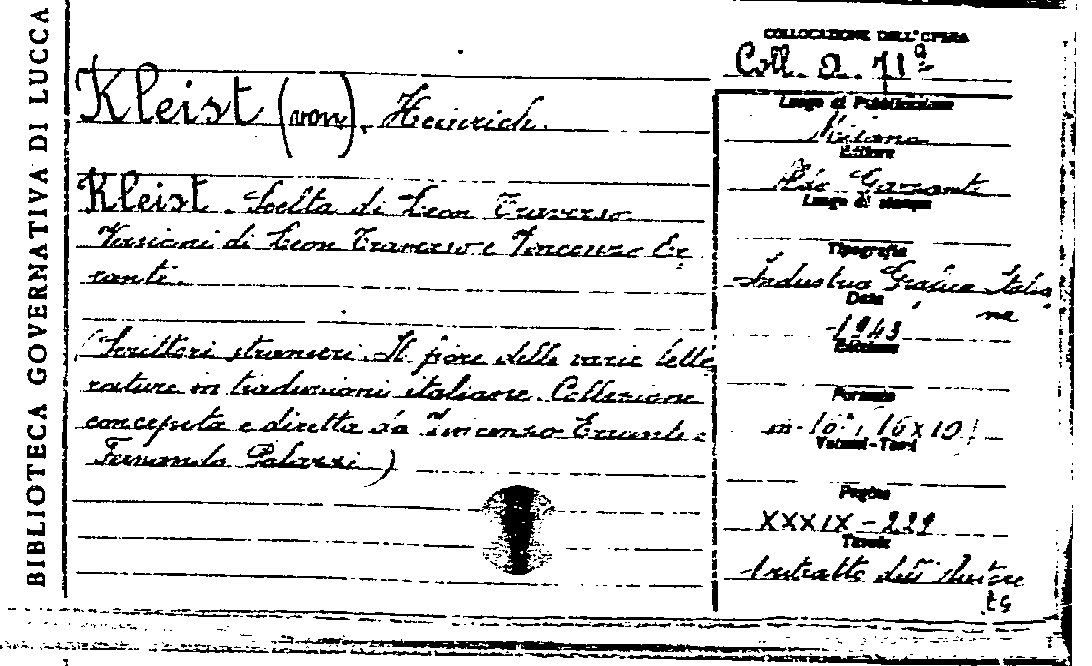 BIBLIOTECA GOVERNATIVA DI LUCCA
COLLOCAZIONE DELL'OPERA
Coll. Q. 71ª
Kleist (von), Heinrich.
Kleist. Scelta di Leon Traverso
Versioni di Leon Traverso e Vincenzo Er
ranti.
(Scrittori stranieri. Il fiore delle varie lette
rature in traduzioni italiane. Collezione
concepita e diretta da Vincenzo Errante e
Fernando Palazzi)
Luogo di Pubblicazione
Milano
Editore
Aldo Garzanti
Luogo di stampa
Tipografia
Industria Grafica Italia
na
Data
1943
Edizione
Formato
in-16°; 16x10
Volumi-Tomi
Pagine
XXXIX-229
Tavole
1 ritratto dell'Autore